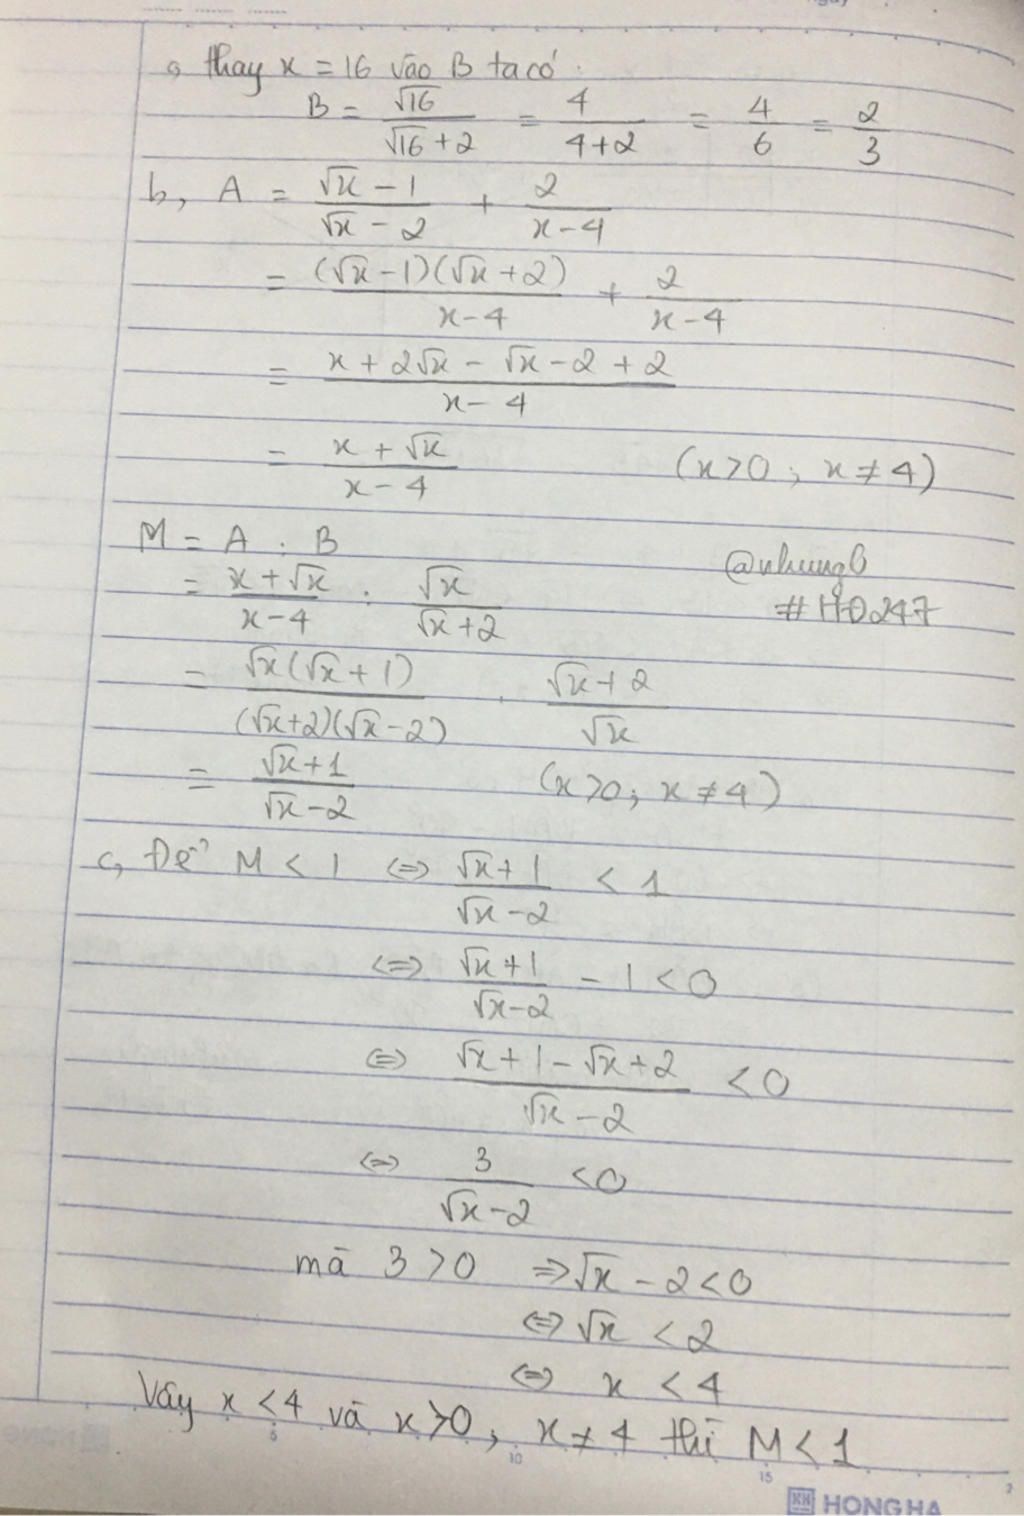 a, thay x = 16 vào B ta có
B = √16 / (√16 + 2) = 4 / (4+2) = 4/6 = 2/3
b, A = (√x - 1) / (√x - 2) + 2 / (x - 4)
= (√x - 1)(√x + 2) / (x - 4) + 2 / (x - 4)
= (x + 2√x - √x - 2 + 2) / (x - 4)
= (x + √x) / (x - 4) (x > 0 ; x ≠ 4)
M = A : B
@nhungb
= (x + √x) / (x - 4) : √x / (√x + 2)
#HD247
= √x(√x + 1) / (√x + 2)(√x - 2) . (√x + 2) / √x
= (√x + 1) / (√x - 2) (x > 0 ; x ≠ 4)
c, Để M < 1 <=> (√x + 1) / (√x - 2) < 1
<=> (√x + 1) / (√x - 2) - 1 < 0
<=> (√x + 1 - √x + 2) / (√x - 2) < 0
<=> 3 / (√x - 2) < 0
mà 3 > 0 => √x - 2 < 0
<=> √x < 2
<=> x < 4
Vậy x < 4 và x > 0, x ≠ 4 thì M < 1
5 10 15
HONG HA